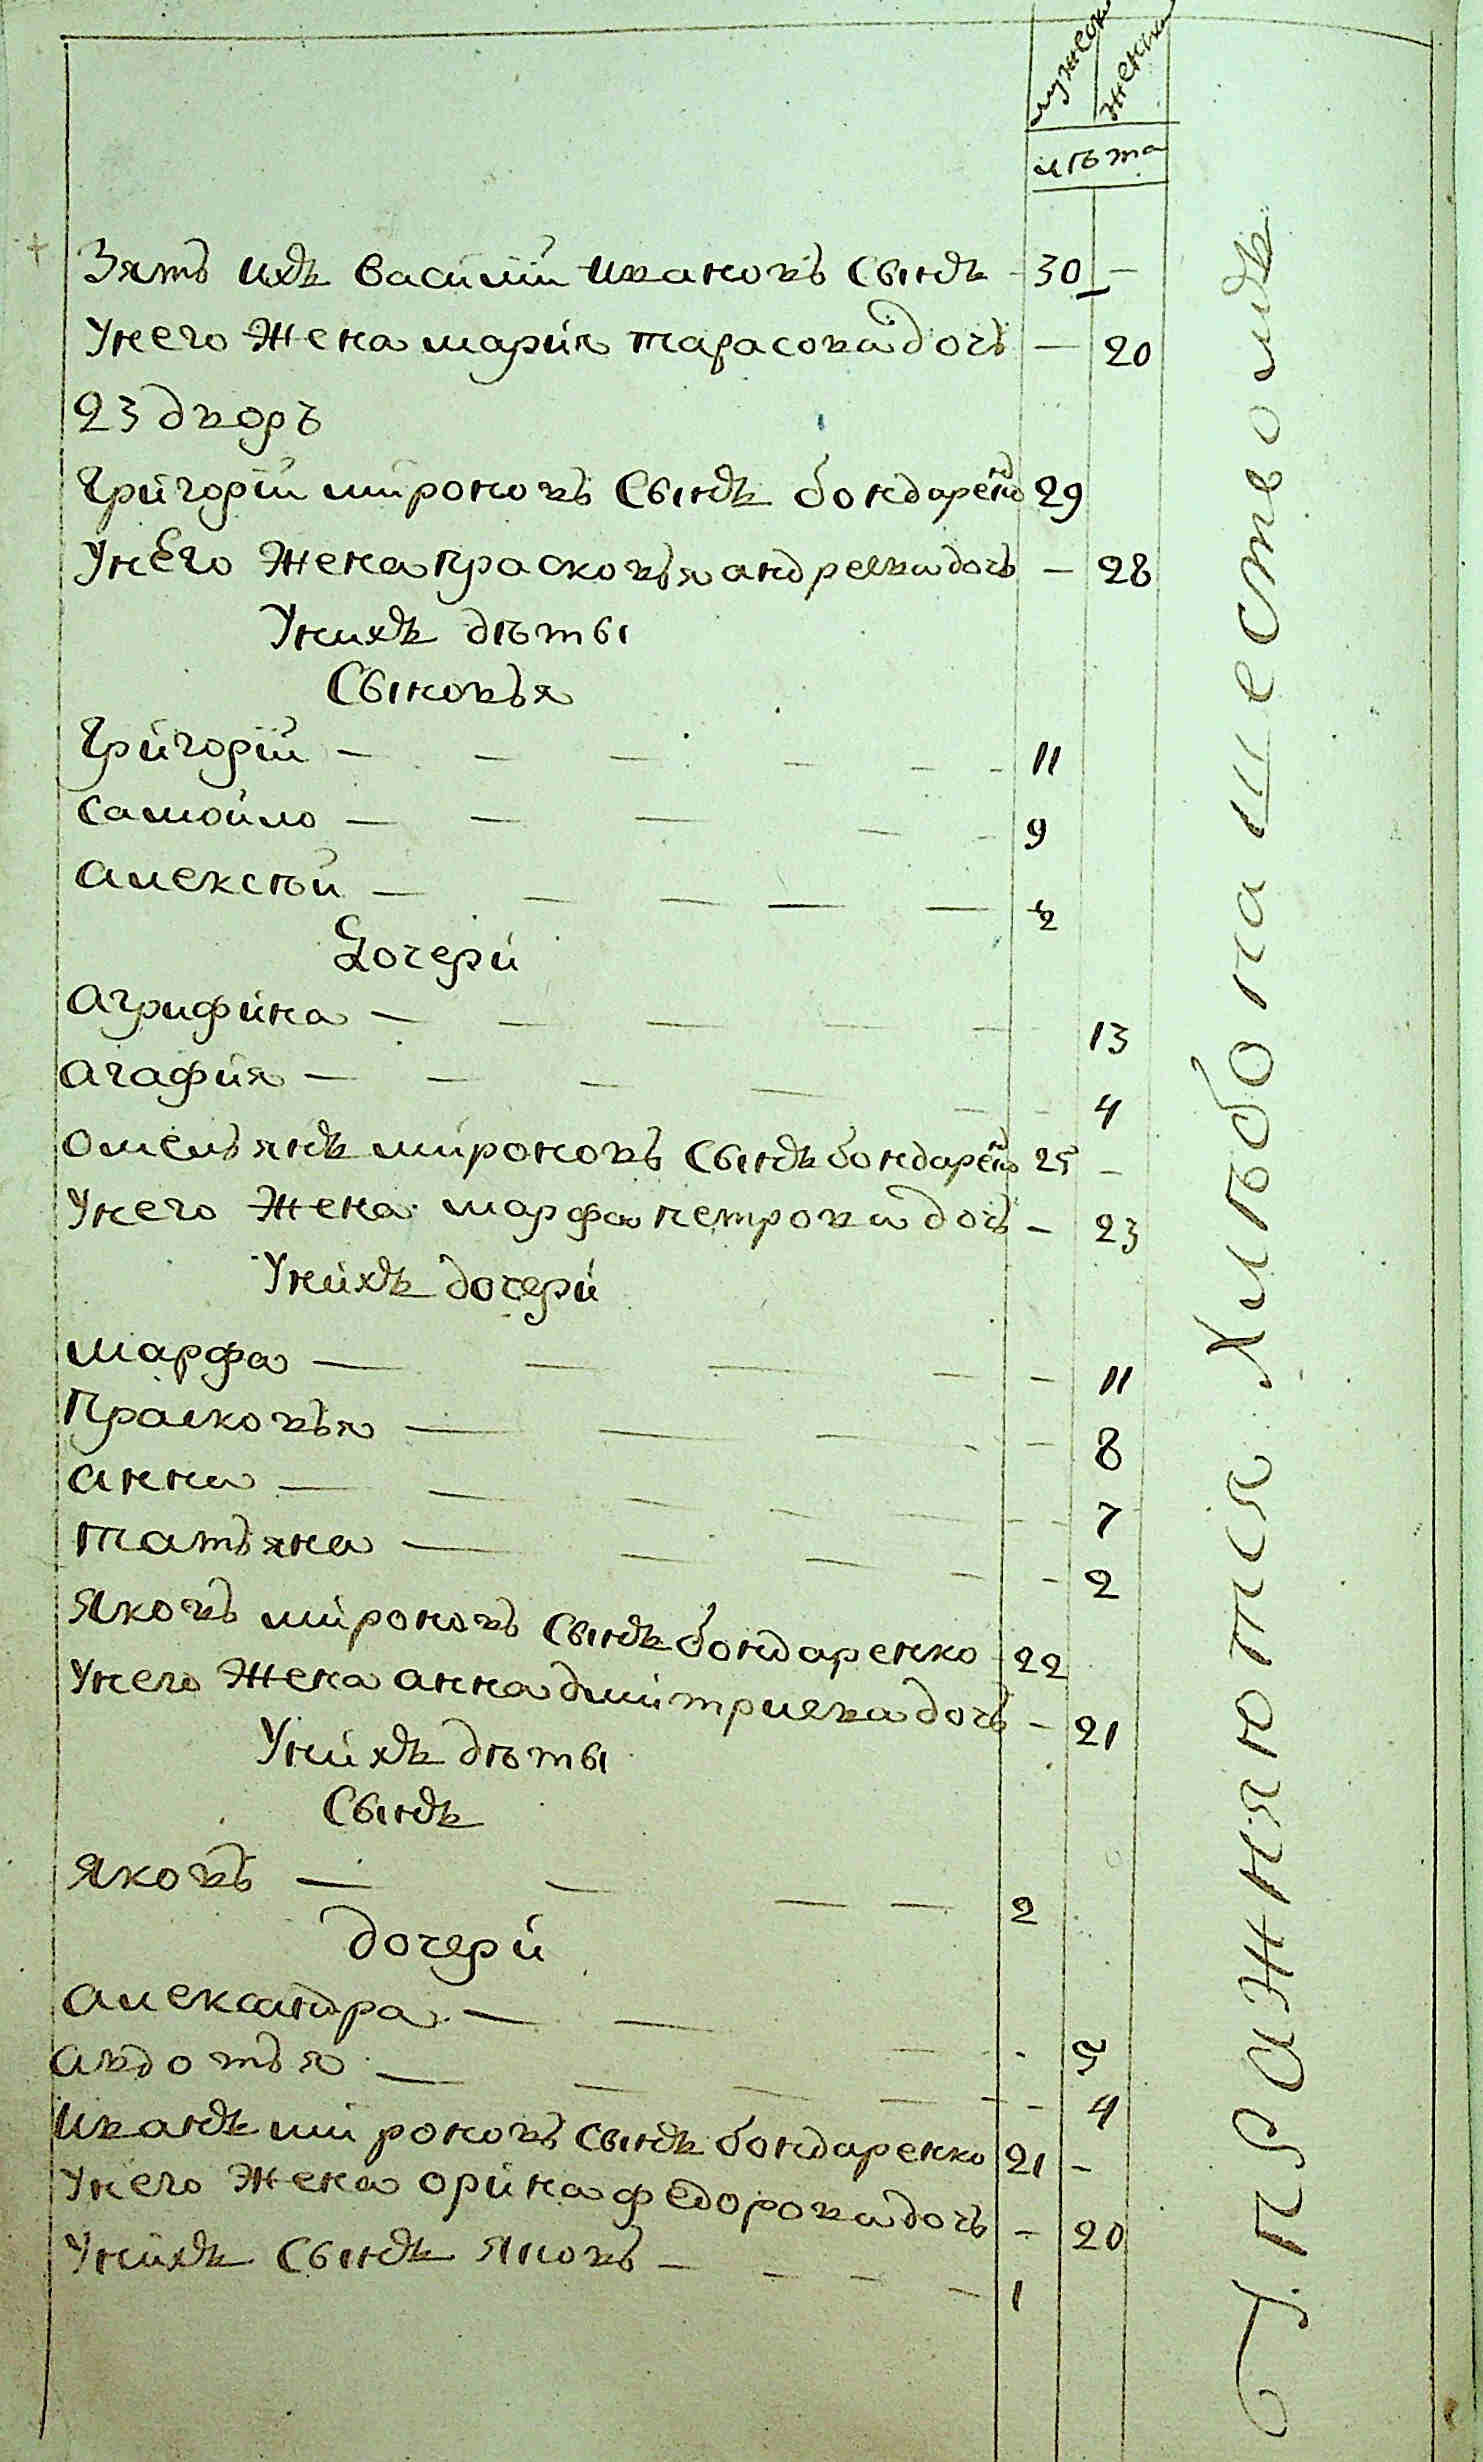 мужеск женска
лѣта
Зять ихъ Василий Ивановъ Сынъ - 30 -
Унего Жена мария тарасова дочь - 20
23 дворъ
Григорий мироновъ Сынъ бондаренко 29
Унего Жена прасковья андреева дочь - 28
Унихъ дѣты
Сыновья
Григорий - - - - - - 11
Самойло - - - - - 9
алексѣй - - - - - 2
Дочери
агрифина - - - - - 13
агафия - - - - - - 4
омельянъ мироновъ Сынъ бондаренко 25 -
Унего Жена марфа петрова дочь - 23
Унихъ дочери
марфа - - - - - 11
Прасковья - - - - - 8
анна - - - - - - 7
татьяна - - - - - 2
Яковъ мироновъ Сынъ бондаренко 22
Унего Жена анна дмитриева дочь - 21
Унихъ дѣты
Сынъ
Яковъ - - - - 2
дочери
александра - - - - 5
авдотья - - - - - - 4
Иванъ мироновъ Сынъ бондаренко 21 -
Унего Жена орина федорова дочь - 20
Унихъ Сынъ Яковъ - - - - 1
Упражняются Хлѣбопашествомъ